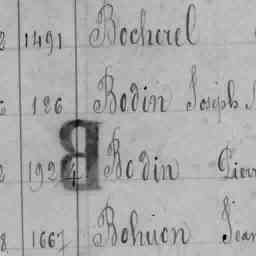 1491 Bocherel
126 Bodin Joseph
B
1924 Bodin Pierr
8 1667 Bohuon Jean